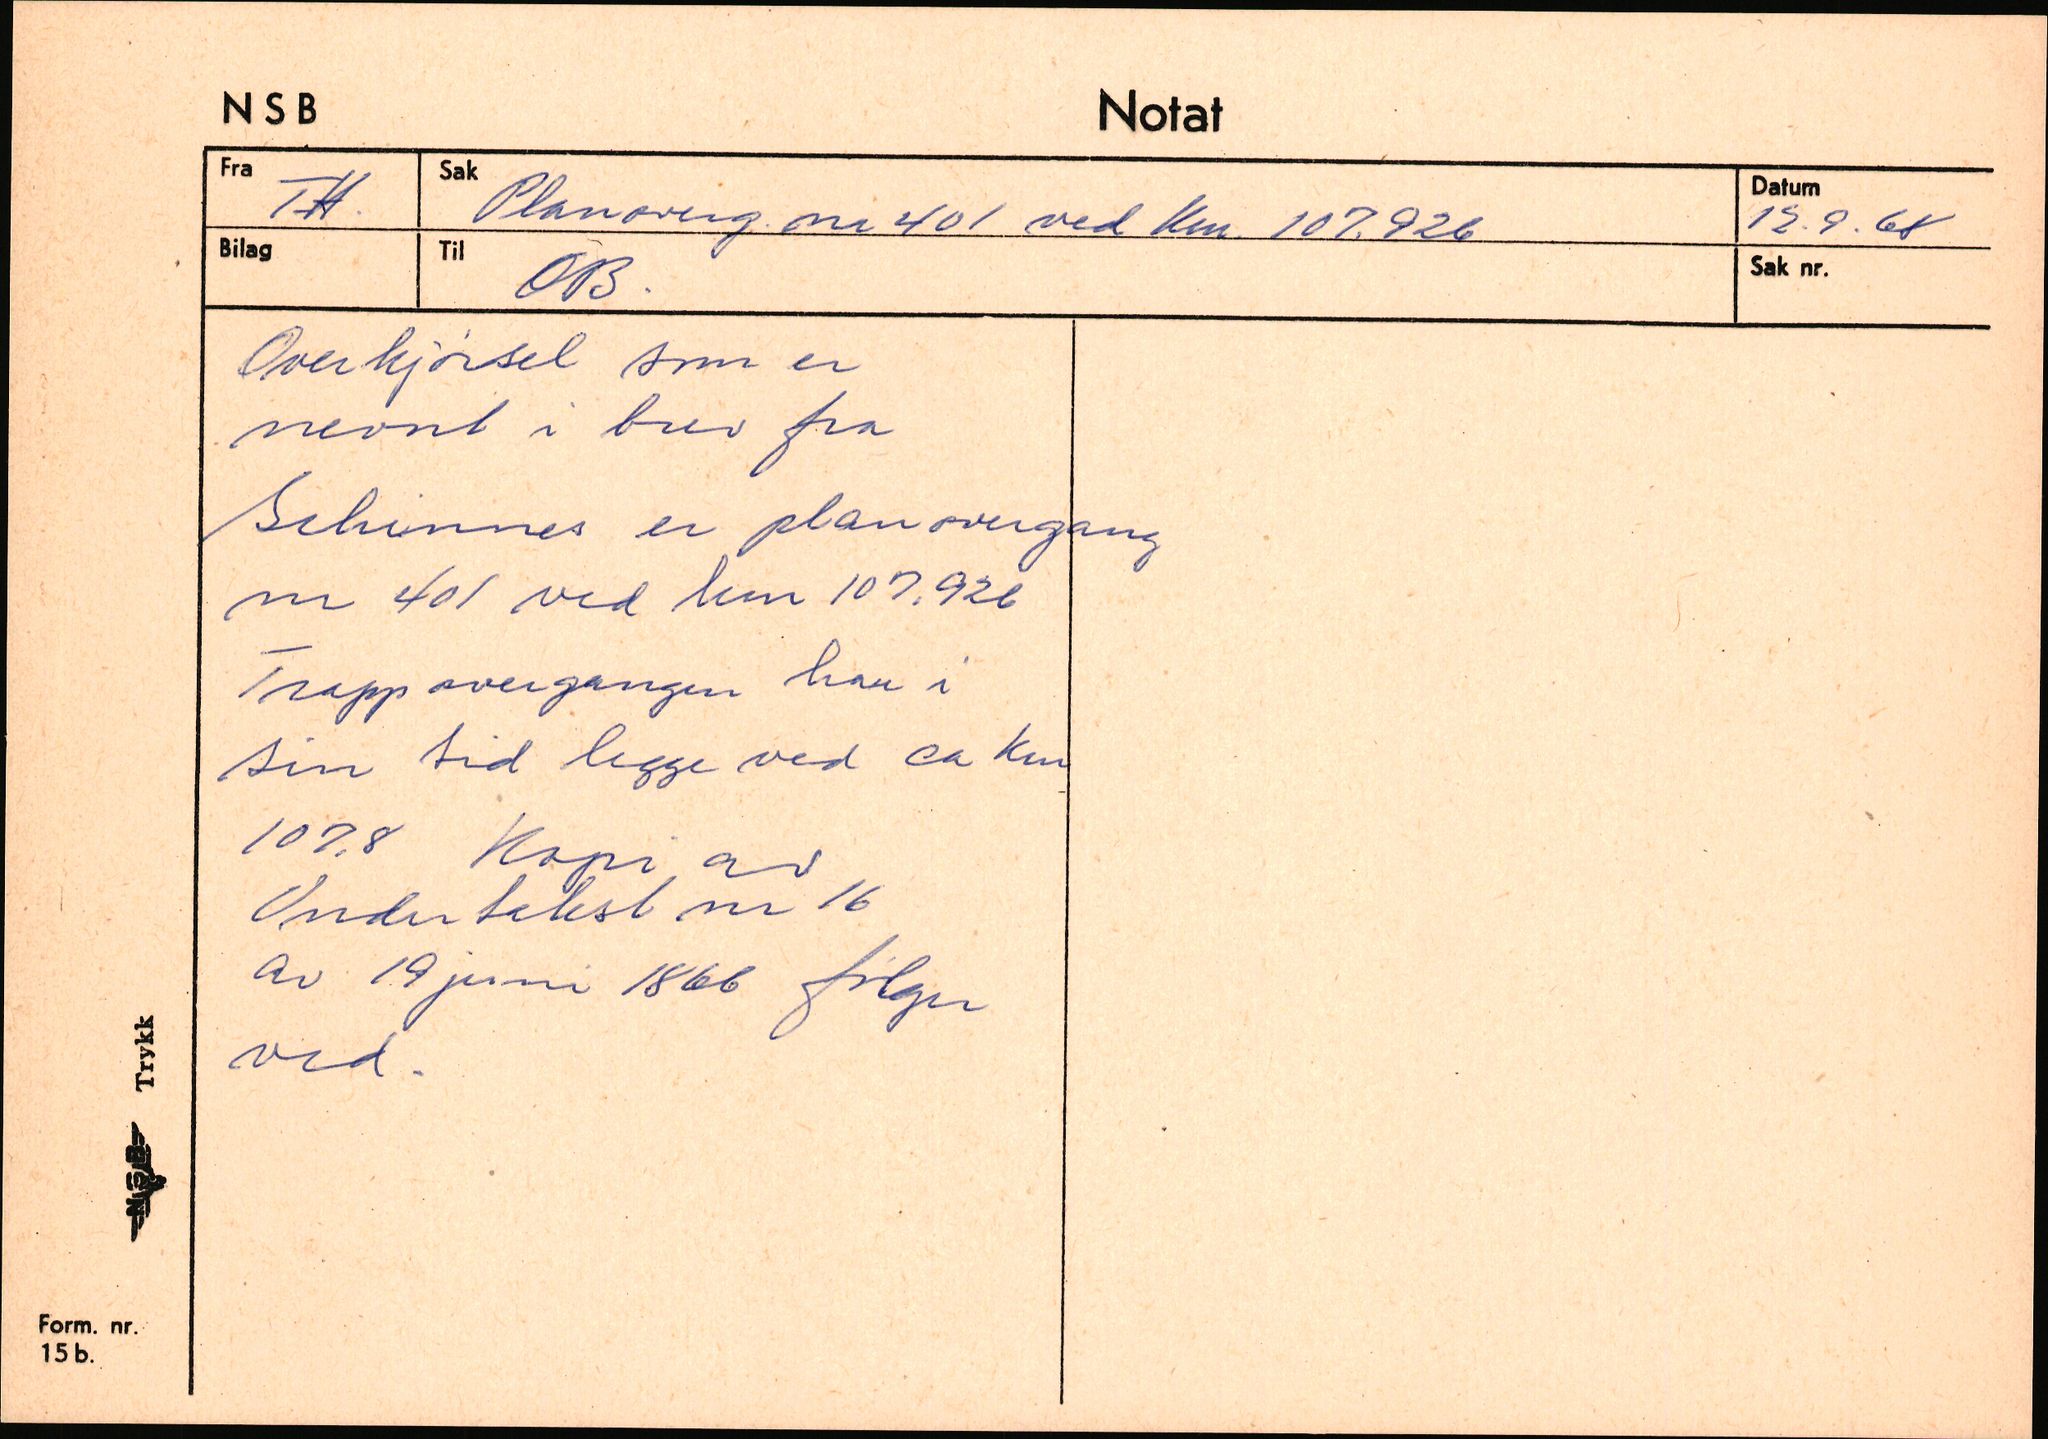 NSB Notat
Fra TH. Sak Planoverg. nr 401 ved Km. 107.926 Datum 12.9.68
Bilag Til OB. Sak nr.
Overkjörsel som er
nevnt i brev fra
Schinnes er planovergang
nr 401 ved km 107.926
Trappovergangen har i
sin tid legge ved ca Km
107.8 Kopi av
Undertakst nr 16
av 19 juni 1866 følger
ved.
NSB Trykk
Form. nr.
15b.